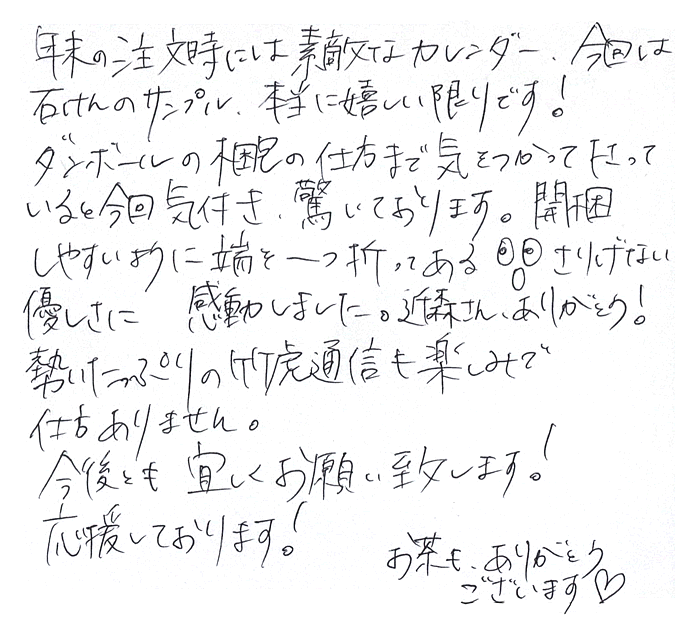 年末の注文時には素敵なカレンダー、今回は
石けんのサンプル、本当に嬉しい限りです!
ダンボールの梱包の仕方まで気をつかって下さって
いると今回気付き、驚いております。開梱
しやすいように端を一つ折ってある さりげない
優しさに 感動しました。近森さん、ありがとう!
勢いたっぷりの竹虎通信も楽しみで
仕方ありません。
今後とも宜しくお願い致します!
応援しております!
お茶も、ありがとう
ございます♡